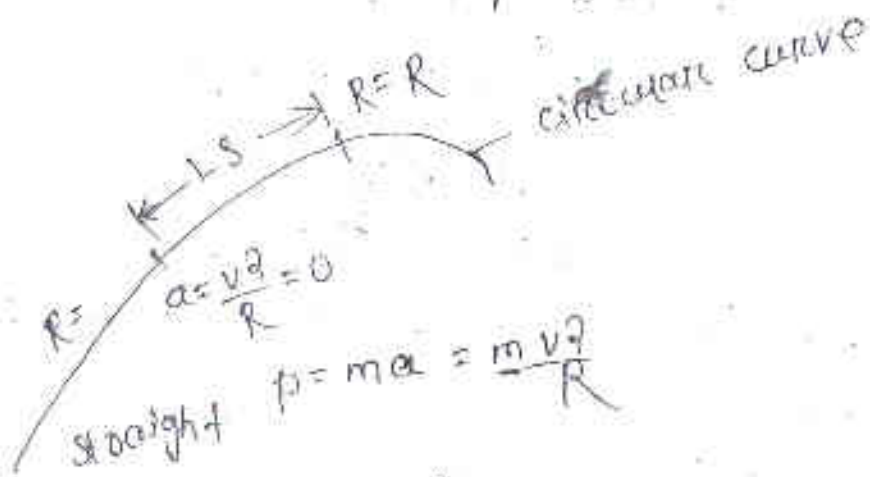 R = R
circular curve
LS
R =
a = v²/R = 0
straight
p = ma = mv²/R